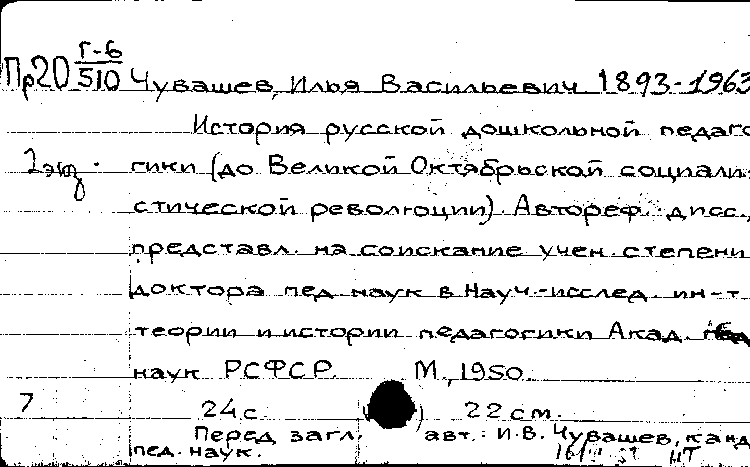 Пр20 Г-6/510 Чувашев, Илья Васильевич 1893-1963
История русской дошкольной педаго
2 экз. гики (до Великой Октябрьской социали-
стической революции). Автореф. дисс.,
представл. на соискание учен. степени
доктора пед. наук в Науч.-исслед. ин-т
теории и истории педагогики Акад. пед.
наук РСФСР. М., 1950.
7 24 с. 22 см.
Перед загл. авт.: И.В. Чувашев, канд.
пед. наук.
НТ